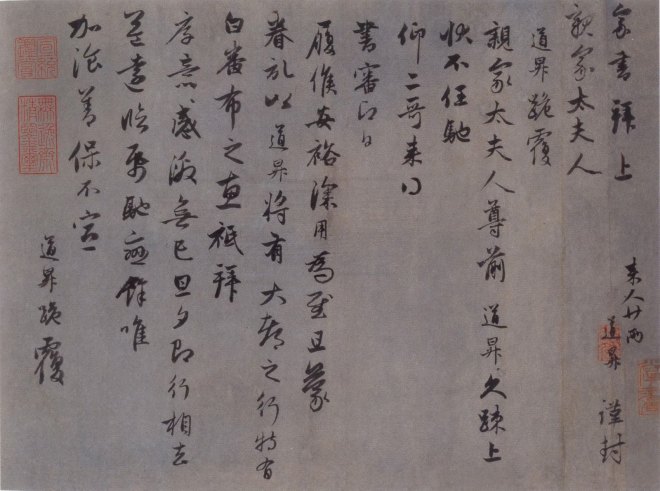 家書拜上
親家太夫人
來人廿兩
道昇 謹封
道昇跪覆
親家太夫人尊前道昇久疎上
狀不任馳
仰二哥來得
書審即日
履候安裕深用為慰且蒙
眷記以道昇將有大都之行特有
白番布之惠祗拜
厚意感激無已旦夕即行相去
益遠臨紙馳戀餘唯
加飡善保不宣
道昇跪覆